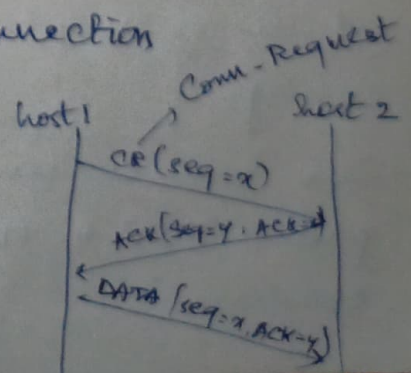 nnection
Conn-Request
host 1 host 2
CR (seq=x)
ACK (seq=y, ACK=
DATA (seq=x, ACK=y)